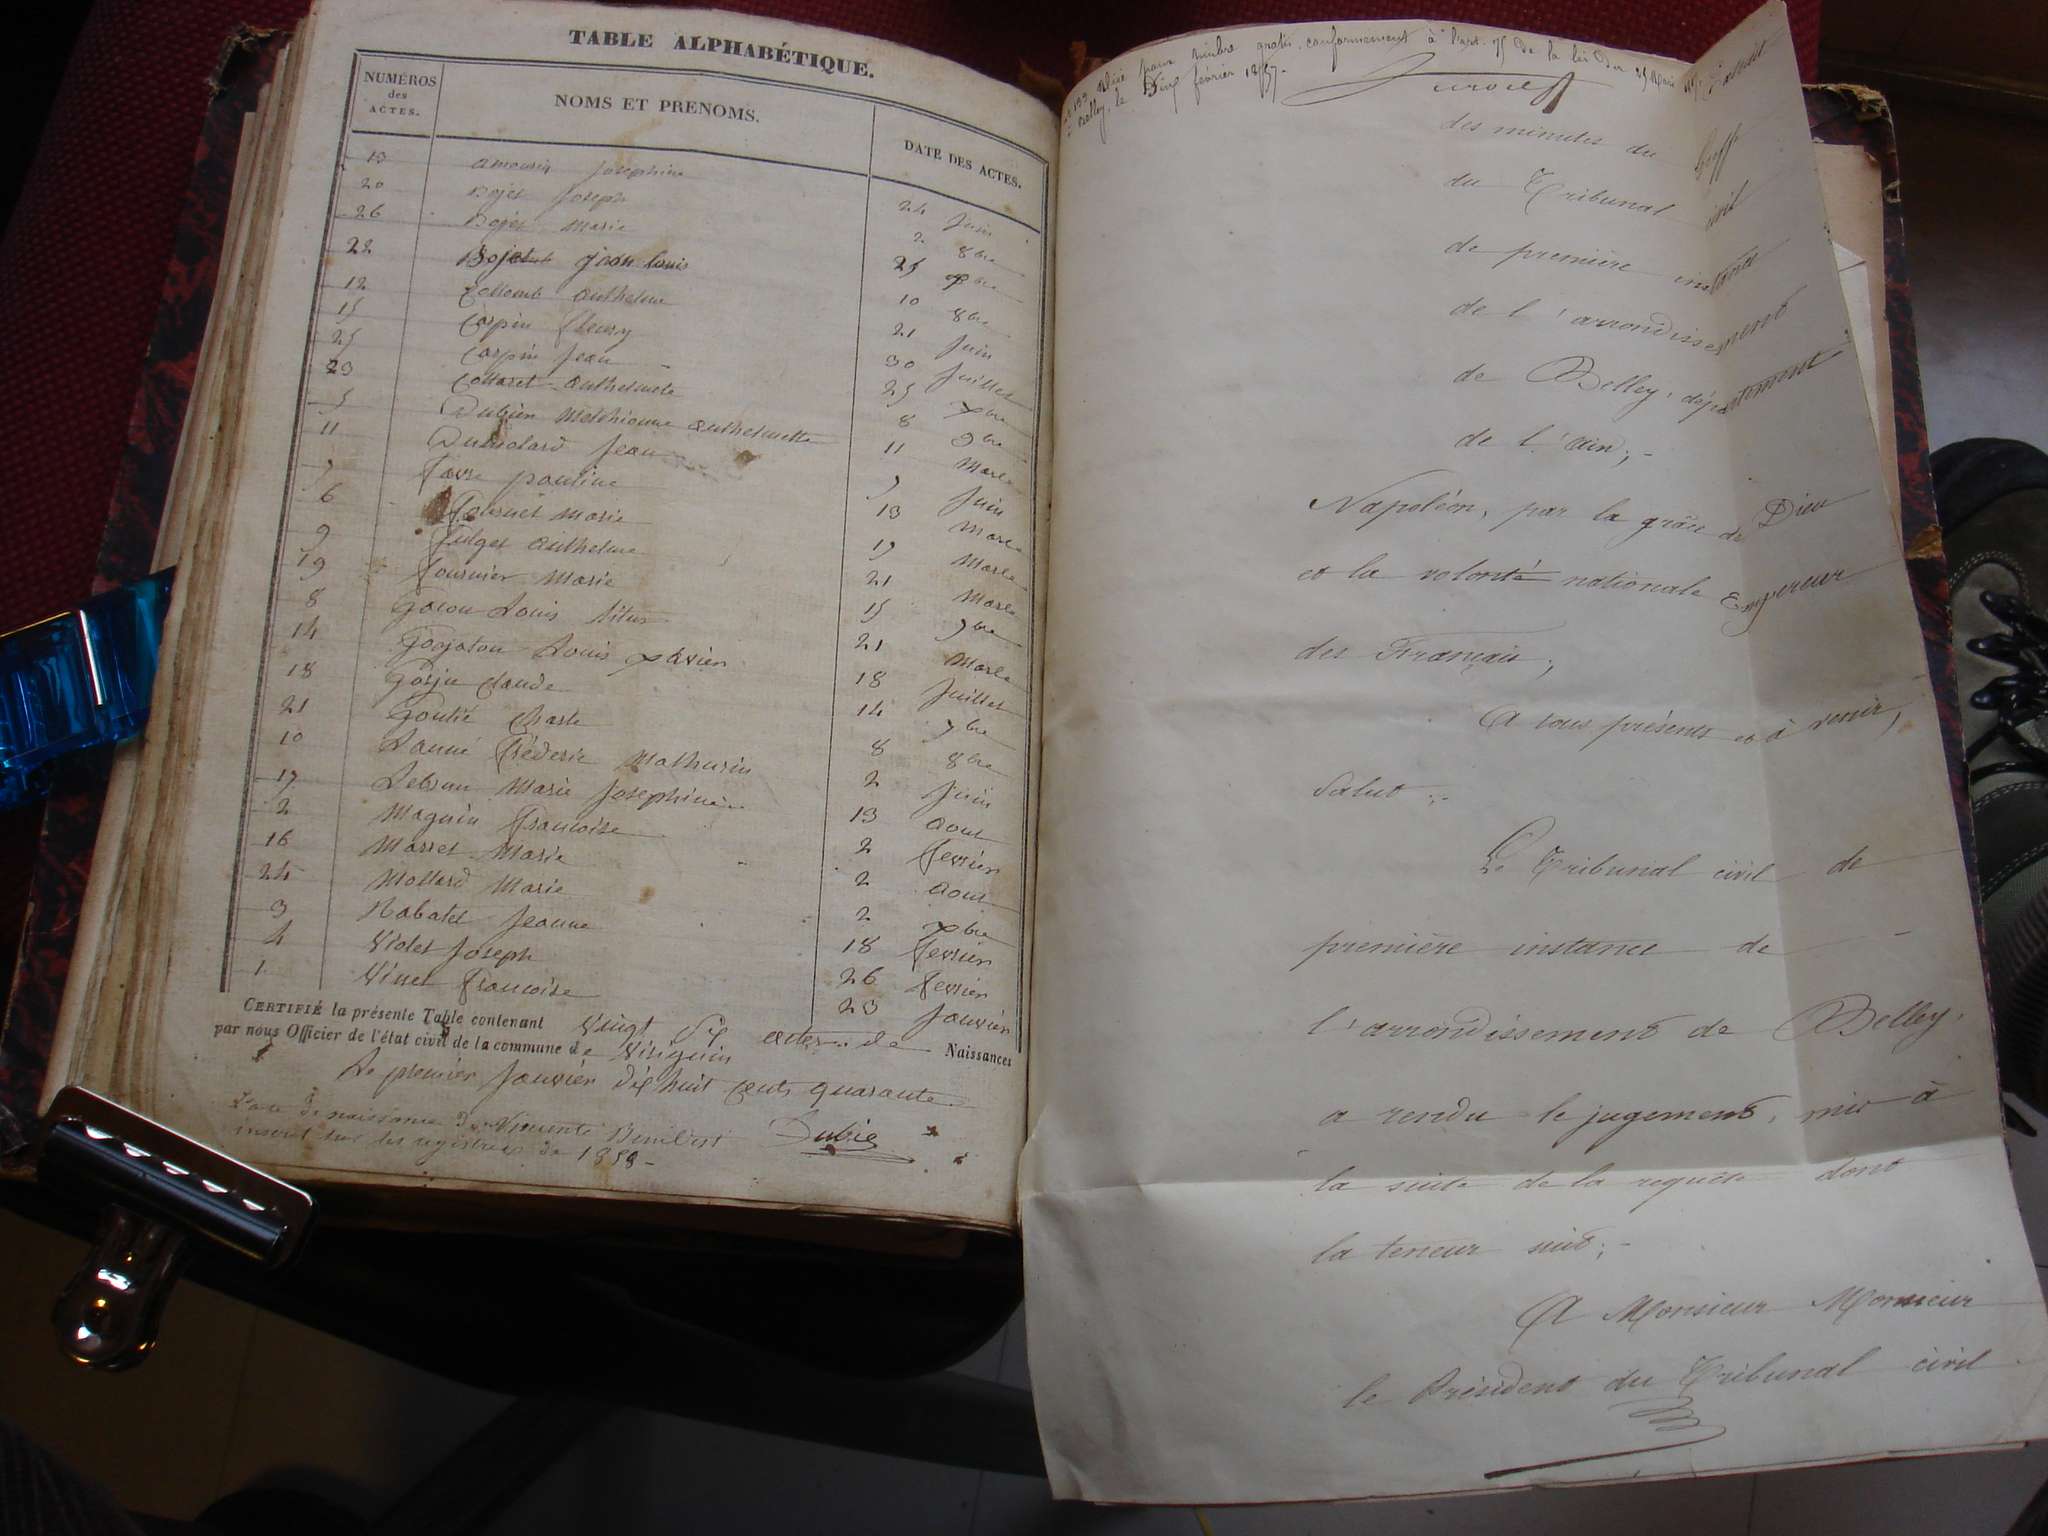 TABLE ALPHABÉTIQUE.
NUMÉROS des ACTES.
NOMS ET PRENOMS.
DATE DES ACTES.
13 Josephine 24 Juin
20 Bojet Joseph 2 8bre
26 Bojet Marie 25 xbre
22 Bojet jean louis 10 8bre
12 Collomb anthelme 21 Juin
15 Carpin fleury 30 Juillet
25 Carpin Jean 25 xbre
23 Collaret anthelmete 8 9bre
5 Dubien Melchionne anthelmette 11 Mars
11 Dumolard Jean 9 Juin
7 favre pauline 13 Mars
6 Marie 19 Mars
9 fulget anthelme 21 Mars
19 fournier Marie 15 7bre
8 Louis titus 21 Mars
14 Gojoton Louis xavier 18 Juillet
18 Gorju claude 14 7bre
21 8 8bre
10 Frédéric Mathurin 2 Juin
17 Lebrun Marie Josephine 13 aout
2 Magnin Francoise 2 fevrier
16 Marret Marie 2 aout
24 Mollard Marie 2 xbre
3 Rabatel Jeanne 18 fevrier
4 Violet Joseph 26 fevrier
1 Vinet Francoise 23 Janvier
CERTIFIÉ la présente Table contenant Vingt Six actes de Naissances
par nous Officier de l'état civil de la commune de Virignin
Le premier Janvier dix huit cents quarante
L'acte de naissance de Benibert
inscrit sur les registres de
Dubie
Visé pour timbre gratis, conformément à l'art. 75 de la loi du 25 Mars
Belley, le Dix février 1857
Extrait
des minutes du Greffe
du Tribunal civil
de première instance
de l'arrondissement
de Belley, département
de l'Ain;
Napoléon, par la grâce de Dieu
et la volonté nationale Empereur
des Français,
A tous présents et à venir,
Salut;
Le Tribunal civil de
première instance de
l'arrondissement de Belley,
a rendu le jugement, mis à
la suite de la requête dont
la teneur suit;
A Monsieur Monsieur
le Président du Tribunal civil